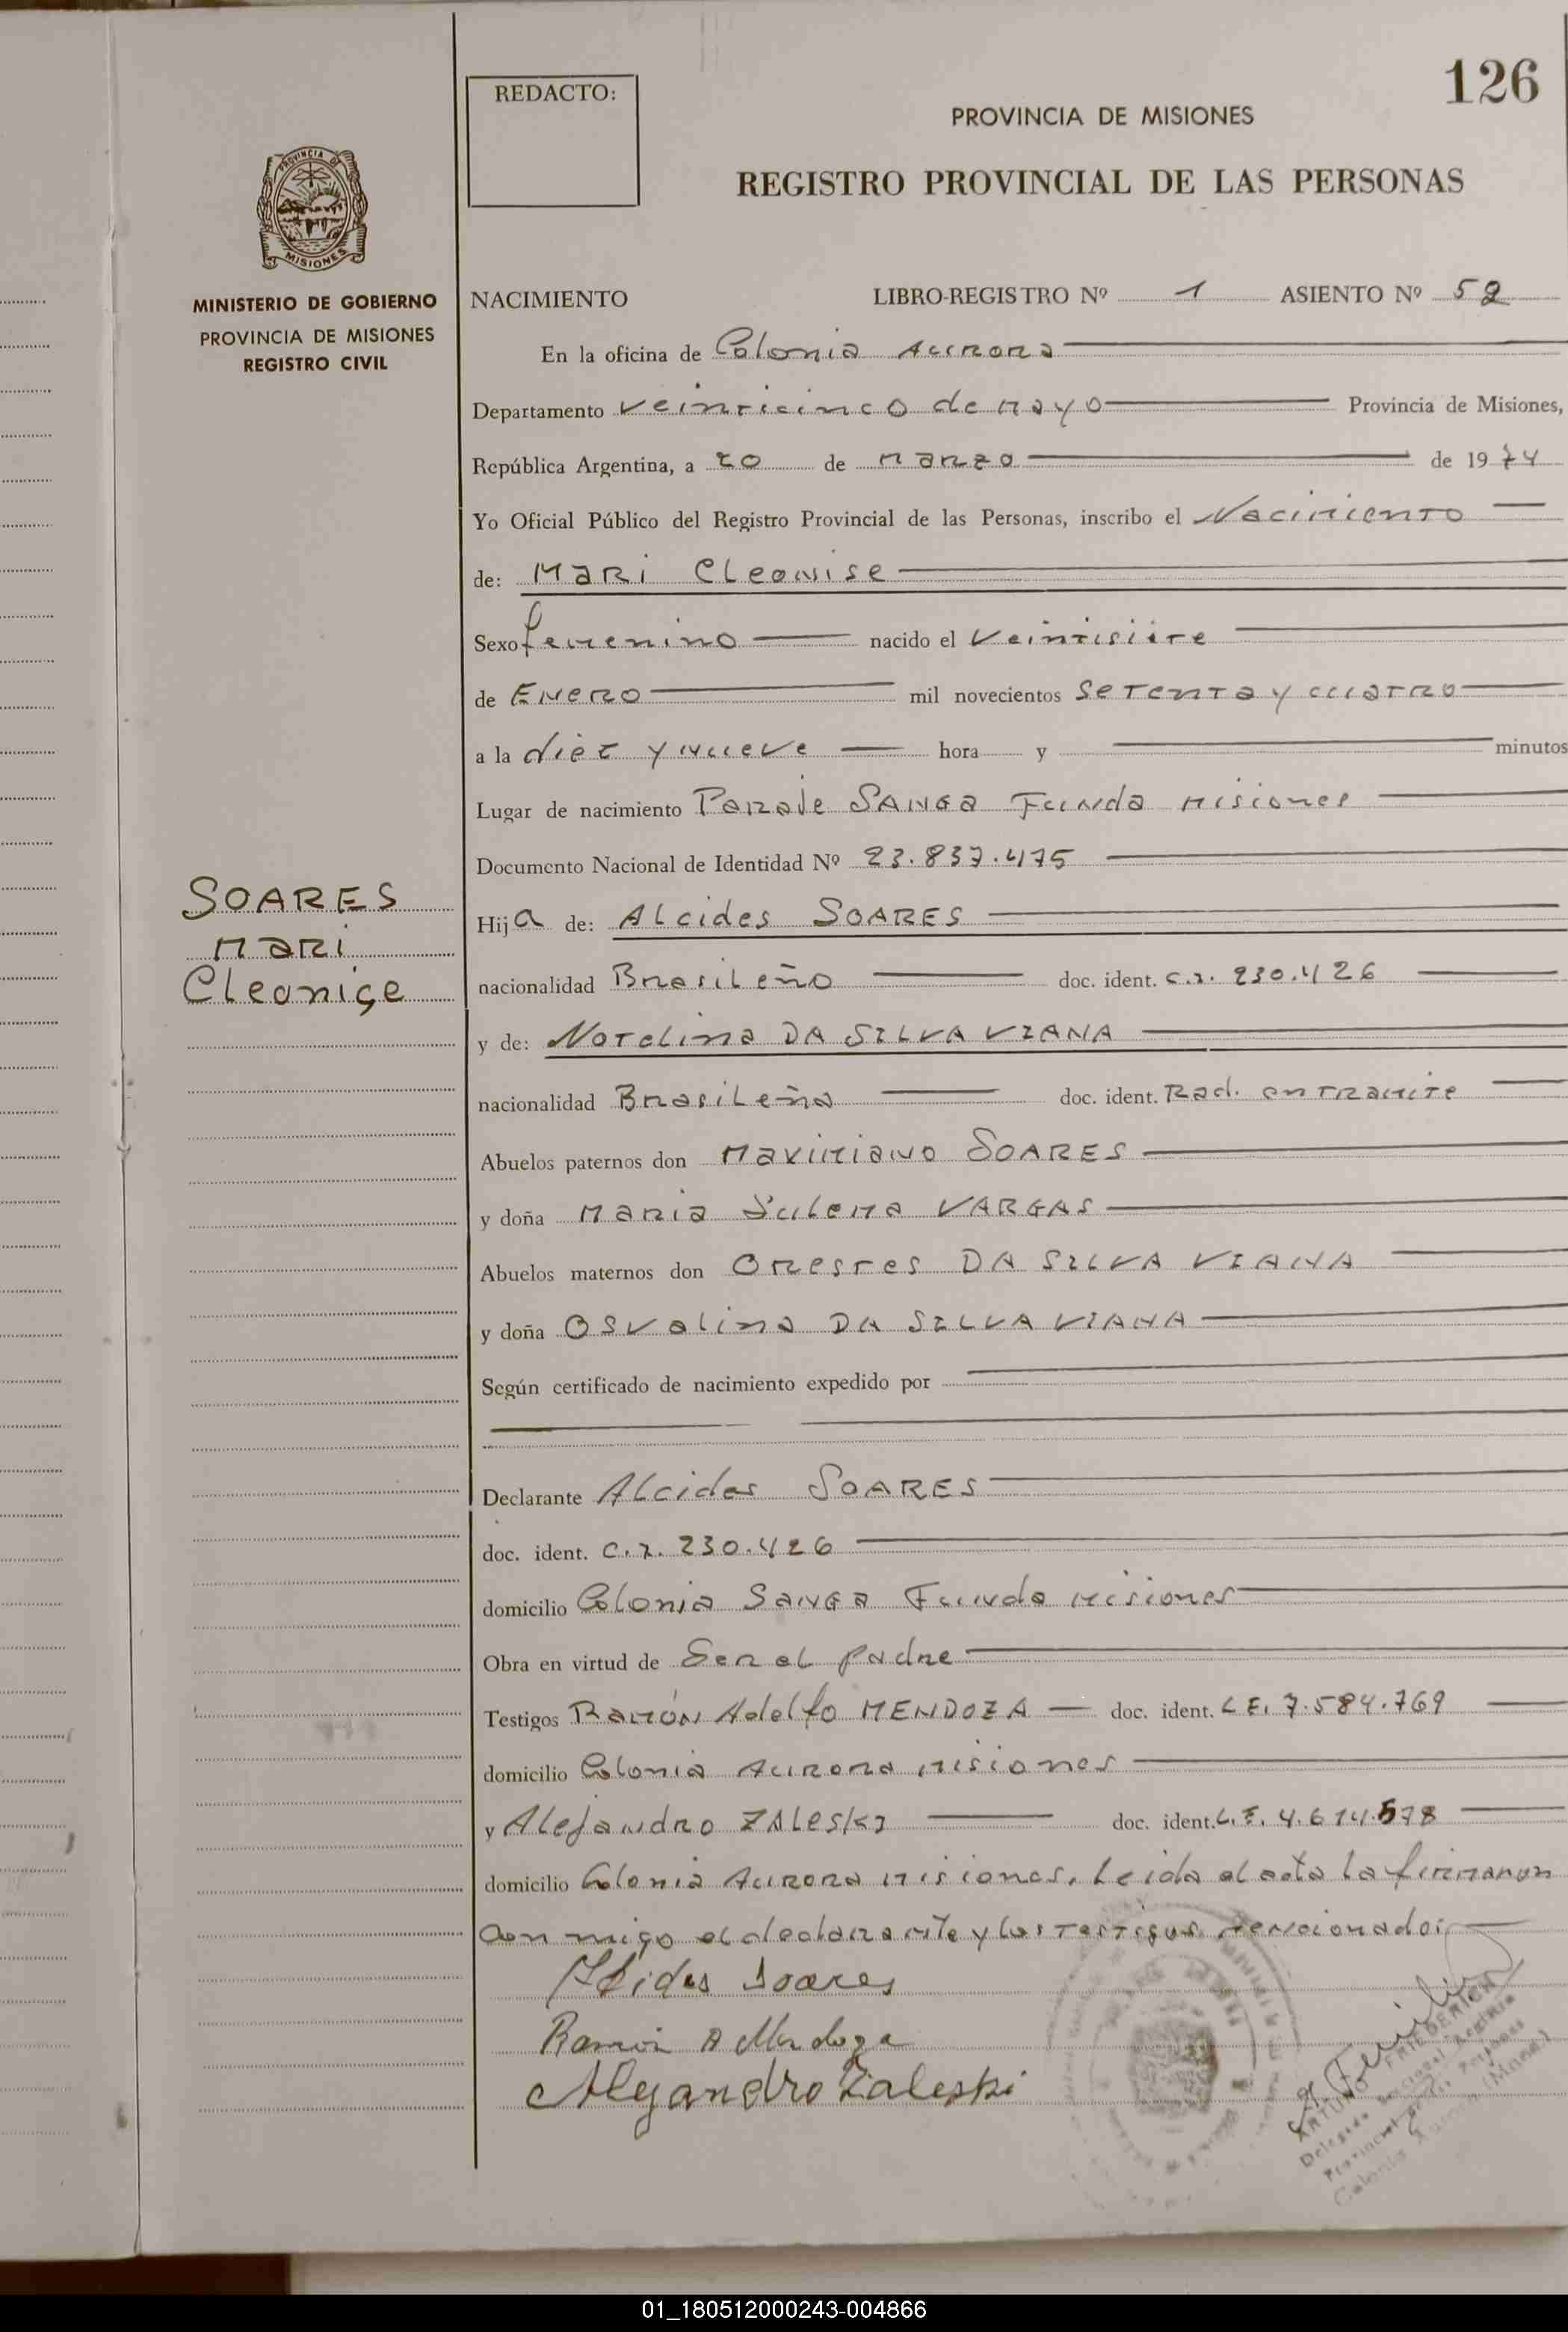 126
REDACTO:
PROVINCIA DE MISIONES
REGISTRO PROVINCIAL DE LAS PERSONAS
PROVINCIA DE
MISIONES
MINISTERIO DE GOBIERNO
PROVINCIA DE MISIONES
REGISTRO CIVIL
NACIMIENTO LIBRO-REGISTRO Nº 1 ASIENTO Nº 52
En la oficina de Colonia Aurora
Departamento veinticinco de mayo Provincia de Misiones,
República Argentina, a 20 de marzo de 1974
Yo Oficial Público del Registro Provincial de las Personas, inscribo el Nacimiento
de: Mari Cleonise
Sexo femenino nacido el veintisiete
de Enero mil novecientos setenta y cuatro
a la diez y nueve hora y minutos
Lugar de nacimiento Paraje SANGA Funda Misiones
Documento Nacional de Identidad Nº 23.837.475
SOARES
Mari
Cleonise
Hija de: Alcides SOARES
nacionalidad Brasileño doc. ident. C.I. 230.426
y de: Notelina DA SILVA VIANA
nacionalidad Brasileña doc. ident. Rad. en tramite
Abuelos paternos don Maximiano SOARES
y doña Maria Julema VARGAS
Abuelos maternos don Orestes DA SILVA VIANA
y doña Osvalina DA SILVA VIANA
Según certificado de nacimiento expedido por
Declarante Alcides SOARES
doc. ident. C.I. 230.426
domicilio Colonia Sanga Funda Misiones
Obra en virtud de Ser el padre
Testigos Ramón Adolfo MENDOZA doc. ident. L.E. 7.584.769
domicilio Colonia Aurora Misiones
y Alejandro ZALESKI doc. ident. L.E. 4.614.578
domicilio Colonia Aurora Misiones. Leida el acta la firmaron
con migo el declarante y los testigos mencionados
Alcides Soares
Ramón A Mendoza
Alejandro Zaleski
ARTURO FRIEDERICH
Delegado Seccional Registro
Provincial de las Personas
Colonia Aurora (Mnes.)
01_180512000243-004866